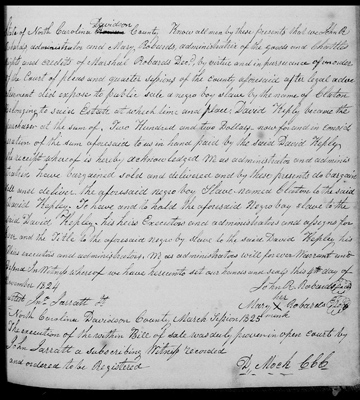 State of North Carolina Davidson County Know all men by these presents that we John R.
Robards administrator and Mary Robards administratrix of the goods and Chattles
rights and credits of Marshal Robards Decd. by virtue and in pursuance of an order
of the Court of pleas and quarter sessions of the county aforesaid after legal adver
tisement did expose to public sale a negro boy slave by the name of Claton
belonging to said Estate at which time and place David Hepley became the
purchaser at the sum of Two Hundred and two Dollars now for and in consid
eration of the sum aforesaid to us in hand paid by the said David Hepley
the receipt whereof is hereby acknowledged We as administrator and adminis
tratrix have bargained sold and delivered and by these presents do bargain
sell and deliver the aforesaid negro boy Slave named Claton to the said
David Hepley To have and to hold the aforesaid Negro boy slave to the
said David Hepley his heirs Executors and administrators and assigns for
ever and the Title to the aforesaid negro boy slave to the said David Hepley his
heirs executors and administrators We as administrators will forever Warrant and
defend In Witness whereof we have hereunto set our hands and seals this 9th day of
1824
John R. Robards Seal
Attest Jno. Jarratt
Mary her X mark Robards Seal
North Carolina Davidson County March Session 1825
The execution of the within Bill of sale was duly proven in open court by
John Jarratt a subscribing Witness recorded
and ordered to be Registered
D. Mock CCC